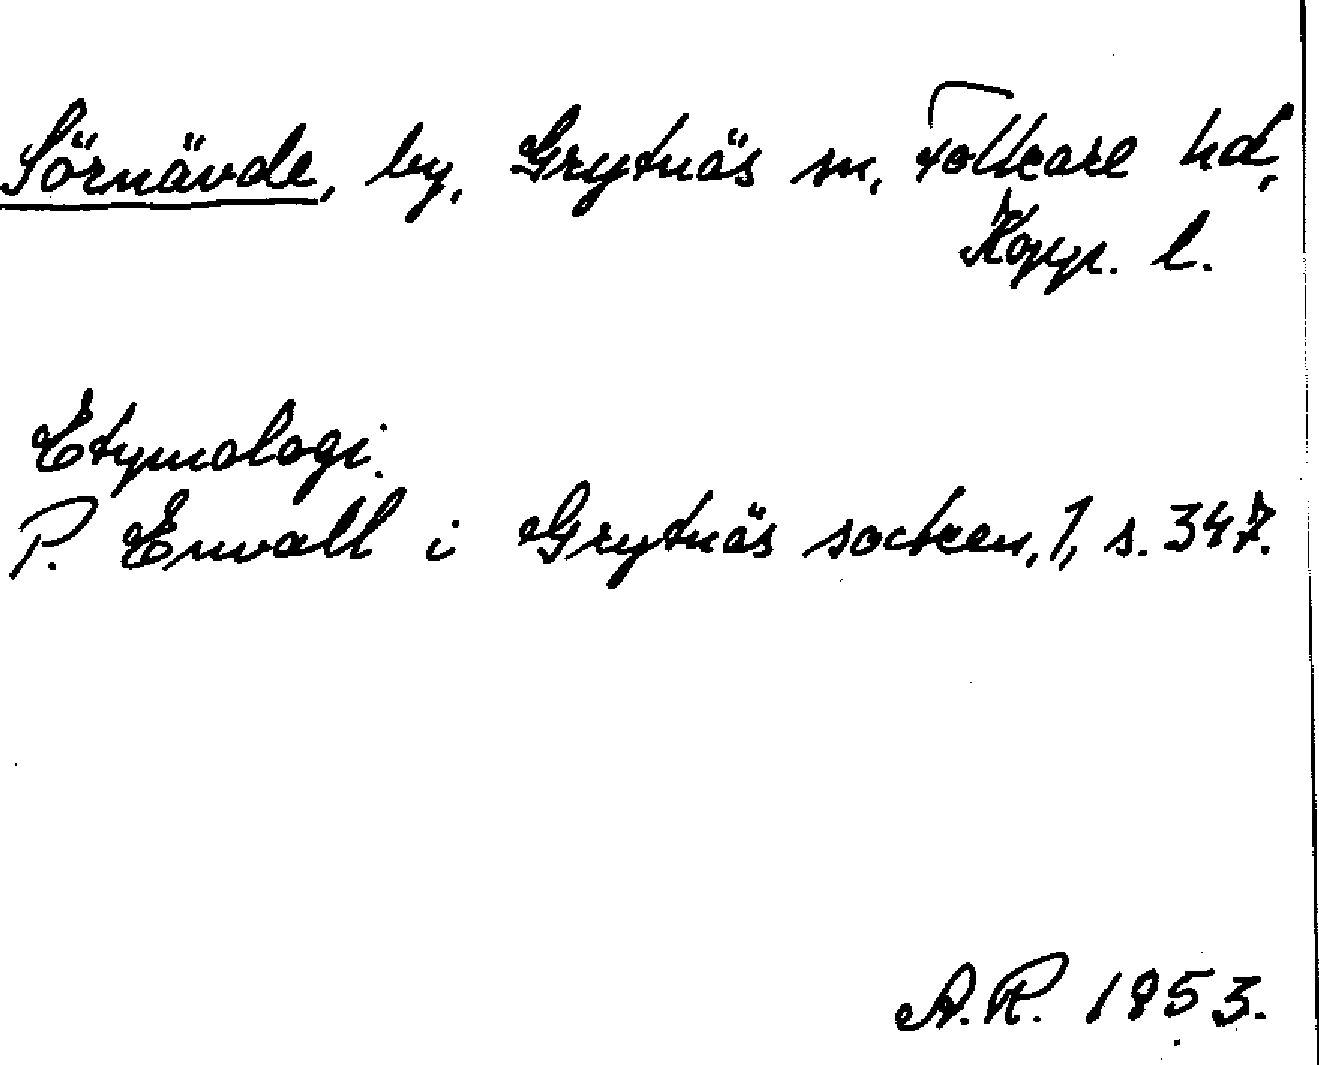 Sörnävde, by, Grytnäs sn, Folkare hd,
Kopp. l.
Etymologi.
P. Envall i Grytnäs socken, 1, s. 347.
A.R. 1953.